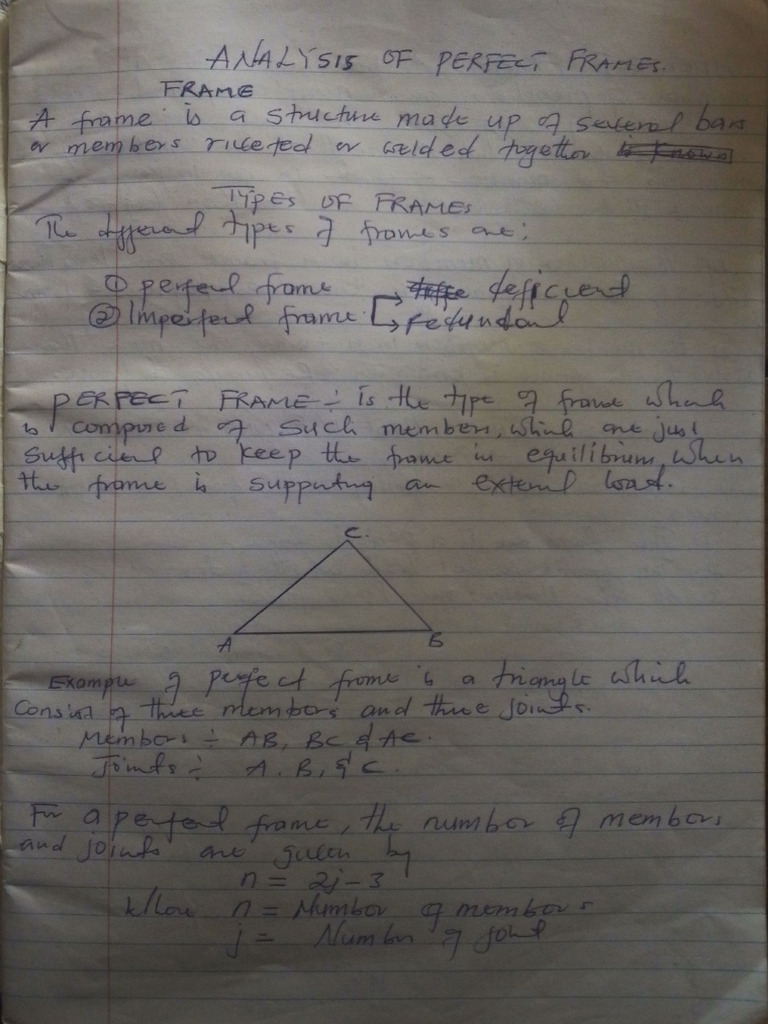 ANALYSIS OF PERFECT FRAMES.
FRAME
A frame is a structure made up of several bars
or members riveted or welded together is known
TYPES OF FRAMES
The different types of frames are;
① perfect frame deficient
② Imperfect frame redundant
PERFECT FRAME ÷ Is the type of frame which
is composed of such members, which are just
sufficient to keep the frame in equilibrium, when
the frame is supporting an external load.
C.
A B
Example of perfect frame is a triangle which
Consist of three members and three joints.
Members ÷ AB, BC & AC.
Joints ÷ A. B, & C.
For a perfect frame, the number of members
and joints are given by
n = 2j - 3
Where n = Number of members
j = Number of joint